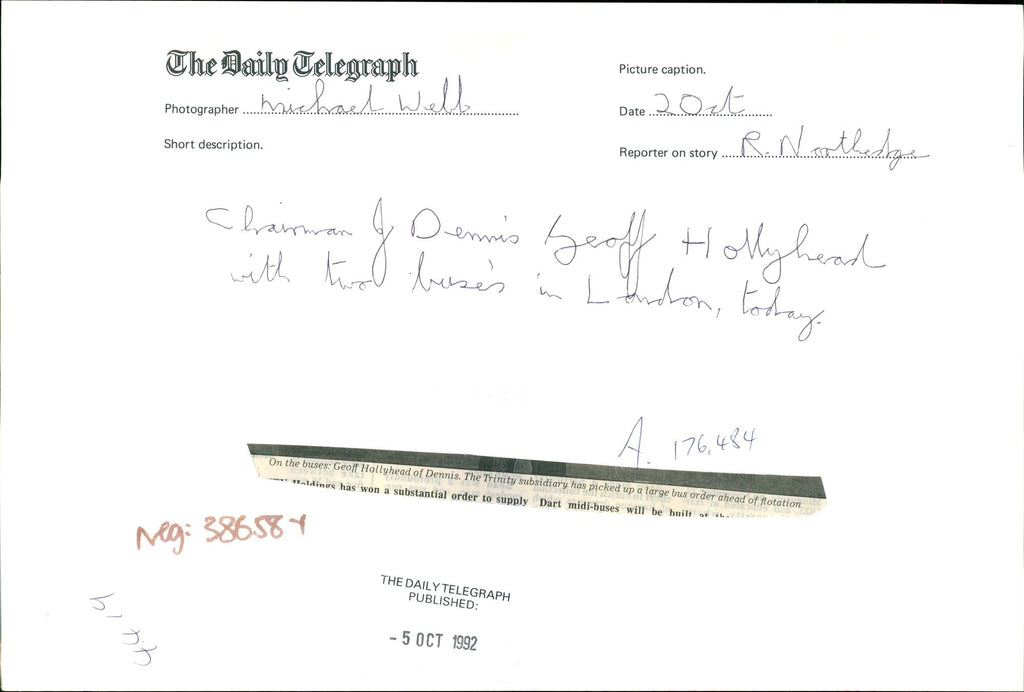 The Daily Telegraph
Picture caption.
Photographer Michael Webb
Date 2 Oct
Short description.
Reporter on story R. Northedge
Chairman of Dennis Geoff Hollyhead
with two buses in London, today.
A. 176,484
On the buses: Geoff Hollyhead of Dennis. The Trinity subsidiary has picked up a large bus order ahead of flotation
Holdings has won a substantial order to supply Dart midi-buses will be built
Neg: 38658
THE DAILY TELEGRAPH
PUBLISHED:
- 5 OCT 1992